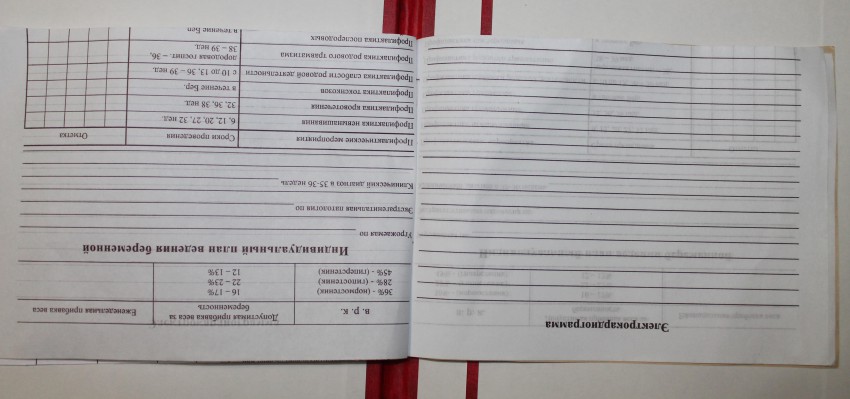 Электрокардиограмма
в. р. к. Допустимая прибавка веса за беременность Еженедельная прибавка веса
36% - (нормостеник) 16 – 17%
28% - (гипостеник) 22 – 23%
45% - (гиперстеник) 12 – 13%
Индивидуальный план ведения беременной
Угрожаемая по
Экстрагенитальная патология
Клинический диагноз в 35-36 недель
Профилактические мероприятия Сроки проведения Отметка
Профилактика невынашивания 6, 12, 20, 27, 32 нед.
Профилактика кровотечения 32, 36, 38 нед.
Профилактика токсикозов в течение бер.
Профилактика слабости родовой деятельности с 10 до 13, 36 – 39 нед.
Профилактика родового травматизма дородовая госпит. – 36, 38 – 39 нед.
Профилактика послеродовых в течение бер.